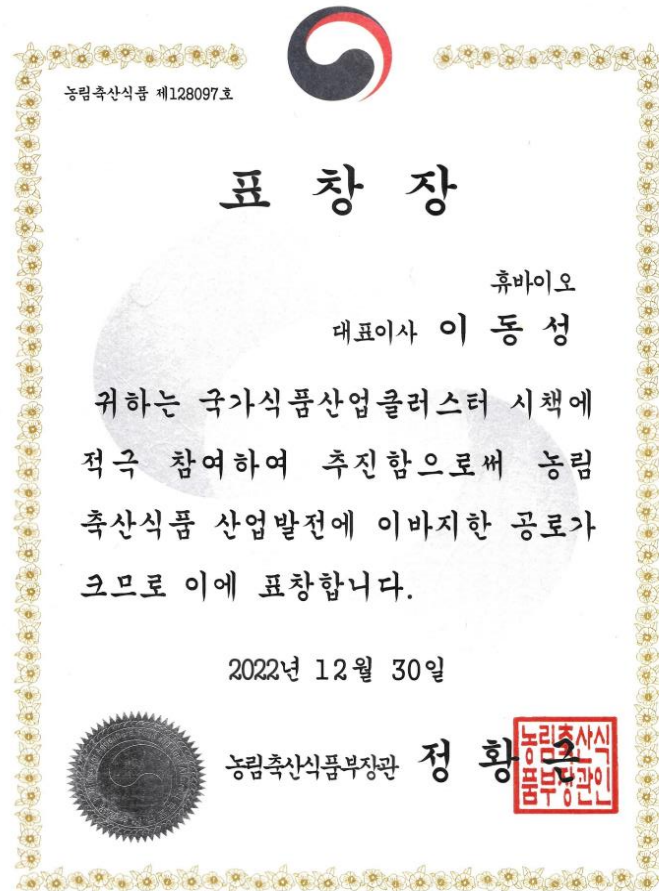 농림축산식품 제128097호
표 창 장
휴바이오
대표이사 이 동 성
귀하는 국가식품산업클러스터 시책에
적극 참여하여 추진함으로써 농림
축산식품 산업발전에 이바지한 공로가
크므로 이에 표창합니다.
2022년 12월 30일
농림축산식품부장관 정 황 근
농림축산식
품부장관인